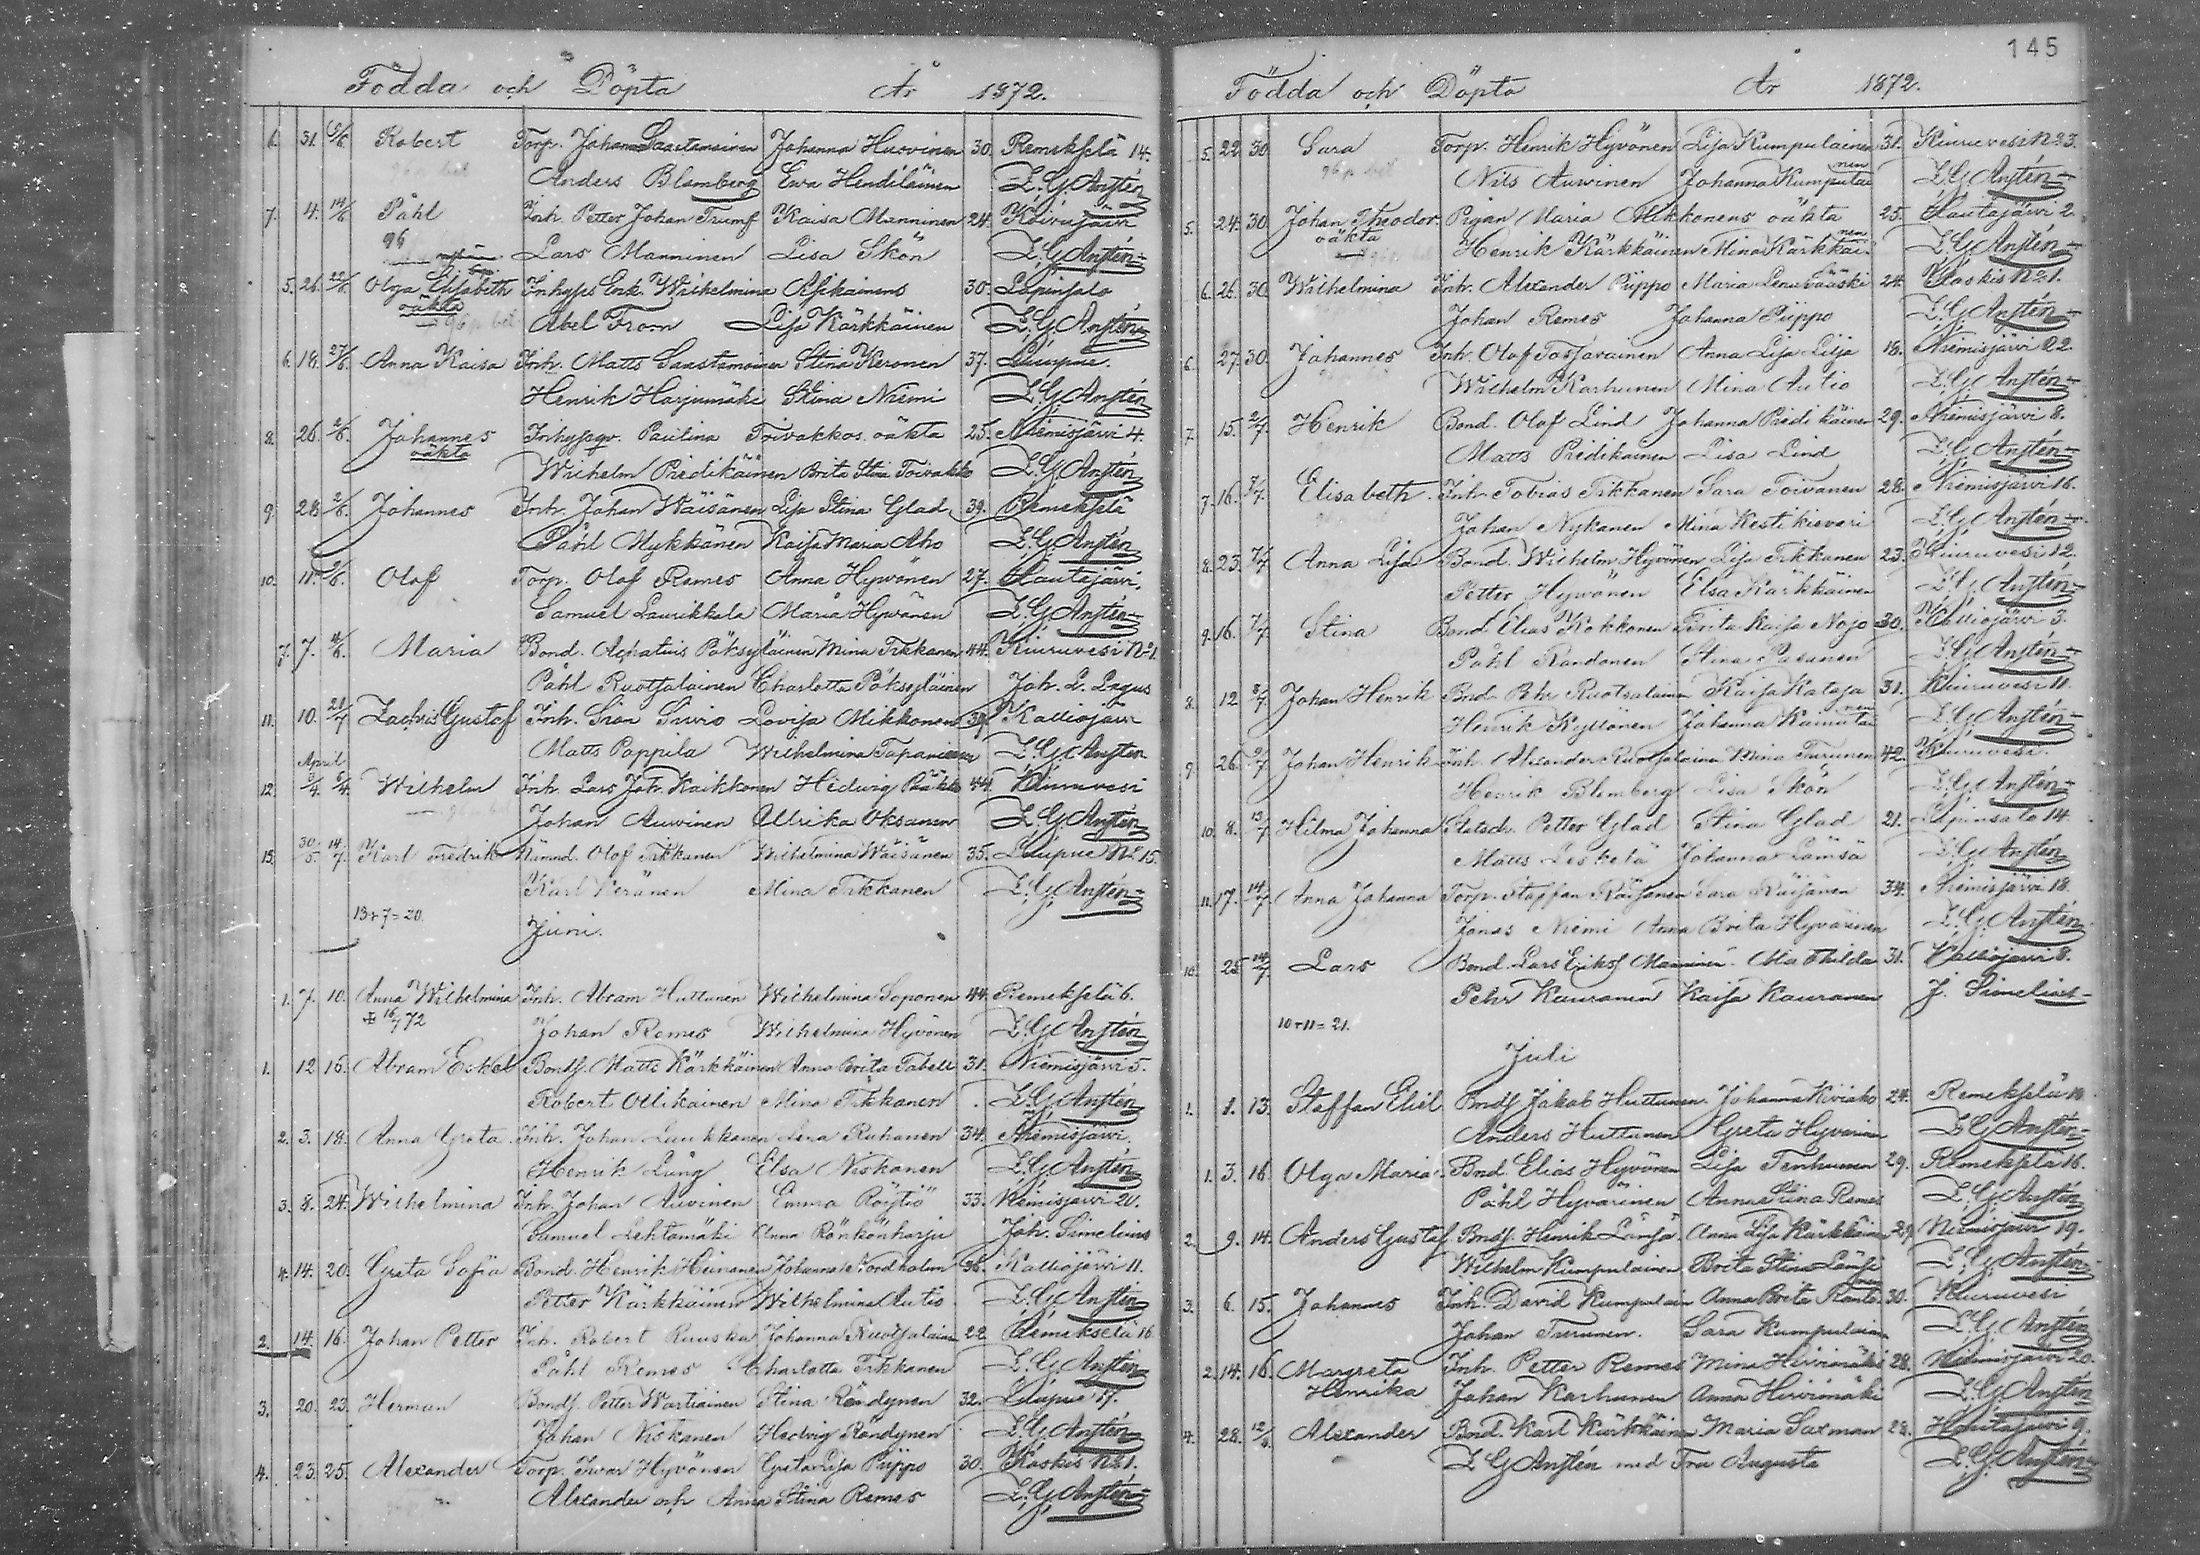 Födda och Döpta År 1872.
6. 31. 6/6 Robert Torp. Johan Saastamoinen Johanna Huovinen 30. Remekselä 14.
Anders Blomberg Ewa Hendiläinen L. G. Anstén
7. 4. 14/6 Påhl Inh. Petter Johan Trumf Kaisa Manninen 24. Koivujärvi
96 Lars Manninen Lisa Skön L. G. Anstén
5. 26. Olga Elisabeth Inhyses Enk. Wilhelmina Asikainens 30. Lapinsalo
oäkta Abel From Lisa Kärkkäinen L. G. Anstén
6. 18. 27/6 Anna Kaisa Inh. Matts Saastamoinen Stina Keronen 37. Luupue.
Henrik Harjumäki Stina Niemi L. G. Anstén
8. 26. 2/6. Johannes Inhysesqv. Paulina Toivakkos oäkta 25. Niemisjärvi 4.
oäkta Wilhelm Predikäinen Brita Stina Toivakko L. G. Anstén
9. 28. 2/6. Johannes Inh. Johan Wäisänen Lisa Stina Glad 39. Remekselä
Påhl Mykkänen Kaisa Maria Aho L. G. Anstén
10. 11. Olof Torp. Olof Remes Anna Hyvönen 27. Hautajärvi.
Samuel Laurikkala Maria Hyvönen L. G. Anstén
7. 7. Maria Bond. Achatius Pöksyläinen Mina Tikkanen 44. Kiuruvesi No 21.
Påhl Ruotsalainen Charlotta Pöksyläinen Joh. L. Lagus
11. 10. Zachris Gustaf Inh. Sion Surio Lovisa Mikkonen 39. Kalliojärvi
Matts Pappila Wilhelmina Tapaninen L. G. Anstén
April
12. 3/4. 6/4. Wilhelm Inh. Lars Joh. Kaikkonen Hedvig 44. Kiuruvesi
Johan Auvinen Ulrika Oksanen L. G. Anstén
13. 30/5. 14/7. Karl Fredrik Nämnd. Olof Tikkanen Wilhelmina Wäisänen 35. Luupue No 15.
Karl Keränen Mina Tikkanen L. G. Anstén
13+7=20.
Juni.
1. 7. 10. Anna Wilhelmina Inh. Abram Huttunen Wilhelmina Soponen 44. Remekselä 6.
16/7 72 Johan Remes Wilhelmina Hyvönen L. G. Anstén
1. 12 16. Abram Eskel Bonds. Matts Kärkkäinen Anna Brita Tabell 31. Niemisjärvi 5.
Robert Ollikainen Mina Tikkanen L. G. Anstén
2. 3. 18. Anna Greta Inh. Johan Luukkanen Lena Ruhanen 34. Niemisjärvi.
Henrik Ljung Elsa Niskanen L. G. Anstén
3. 8. 24. Wilhelmina Inh. Johan Auvinen Emma Röytiö 33. Niemisjärvi 20.
Samuel Lehtomäki Anna Rönkönharju Joh. Simelius
4. 14. 20. Greta Sofia Bond. Henrik Heinonen Johanna Nordholm 36. Kalliojärvi 11.
Petter Kärkkäinen Wilhelmina Autio L. G. Anstén
2. 14. 16. Johan Petter Inh. Robert Ruuska Johanna Ruotsalainen 22 Remekselä 16
Påhl Remes Charlotta Tikkanen L. G. Anstén
3. 20. 23. Herman Bonds. Petter Wartiainen Stina Rändynen 32. Luupue 17.
Johan Niskanen Hedvig Rändynen L. G. Anstén
4. 23. 25. Alexander Torp. Ivar Hyvönen Greta Lisa Piippo 30. Kaskis No 1.
Alexander och Anna Stina Remes L. G. Anstén
145
Födda och Döpta År 1872.
5. 22 30 Sara Torp. Henrik Hyvönen Lisa Kumpulainen 31. Kiuruvesi No 23.
Nils Auvinen Johanna Kumpulainen L. G. Anstén
5. 24. 30. Johan Theodor Pigan Maria Mikkonens oäkta 25. Hautajärvi 2.
oäkta Henrik Kärkkäinen Mina Kärkkäinen L. G. Anstén
6. 26. 30. Wilhelmina Inh. Alexander Piippo Maria Lena Sääski 24. Kaskis No 1.
Johan Remes Johanna Piippo L. G. Anstén
6. 27. 30. Johannes Inh. Olof Tossavainen Anna Lisa Lilja 18. Niemisjärvi 22.
Wilhelm Karhunen Mina Autio L. G. Anstén
7. 15. 2/7. Henrik Bond. Olof Lind Johanna Predikäinen 29. Niemisjärvi 8.
Matts Predikainen Lisa Lind L. G. Anstén
7. 16. 7/7. Elisabeth. Inh. Tobias Tikkanen Sara Toivanen 28. Niemisjärvi 16.
Johan Nykänen Mina Kestikievari L. G. Anstén
8. 23. 7/7 Anna Lisa Bond. Wilhelm Hyvönen Lisa Tikkanen 23. Kiuruvesi 12.
Petter Hyvönen Elsa Kärkkäinen L. G. Anstén
9. 16. 7/7 Stina Bond. Elias Kokkonen Brita Kaisa Nojo 30. Kalliojärvi 3.
Påhl Randonen Stina Pasanen L. G. Anstén
8. 12 8/7 Johan Henrik Bnd. Pehr Ruotsalainen Kaisa Kataja 31. Kiuruvesi 11.
Henrik Kyllönen Johanna L. G. Anstén
9. 26. 9/7 Johan Henrik Inh. Alexander Ruotsalainen Mina Turunen 42. Kiuruvesi.
Henrik Blomberg Lisa Skön L. G. Anstén
10. 8. 13/7 Hilma Johanna Petter Glad Stina Glad 21. Lapinsalo 14.
Matts Leskelä Johanna Lämsä L. G. Anstén
11. 17. 14/7 Anna Johanna Torp. Staffan Räisänen Sara Räisänen 34. Niemisjärvi 18.
Jonas Niemi Anna Brita Hyvärinen L. G. Anstén
10. 25. 14/7 Lars Bond. Lars Eriks. Manninen Mathilda 31. Kalliojärvi 8.
Pehr Kauranen Kaisa Kauranen J. Simelius
10+11=21.
Juli
1. 1. 13. Staffan Eliel Bnds Jakob Huttunen Johanna Kiviaho 24. Remekselä 10
Anders Huttunen Greta Hyvönen L. G. Anstén
1. 3. 16. Olga Maria Bnd. Elias Hyvönen Lisa Tenhunen 29. Remekselä 16.
Påhl Hyvärinen Anna Stina Remes L. G. Anstén
2. 9. 14. Anders Gustaf Bnds. Henrik Lämsä Anna Lisa Kärkkäinen 29. Niemisjärvi 19.
Wilhelm Kumpulainen Brita Stina Lämsä L. G. Anstén
3. 6. 15. Johannes Inh. David Kumpulainen Anna Brita 30. Kiuruvesi
Johan Turunen. Sara Kumpulainen L. G. Anstén
2. 14. 16. Margreta Inh. Petter Remes Mina Hirvimäki 28. Niemisjärvi 20.
Henrika Johan Karhunen Anna Hirvimäki L. G. Anstén
4. 28. Alexander Bnd. Karl Kärkkäinen Maria Saxman 28. Hautajärvi 9.
L G Anstén med Fru Augusta L. G. Anstén